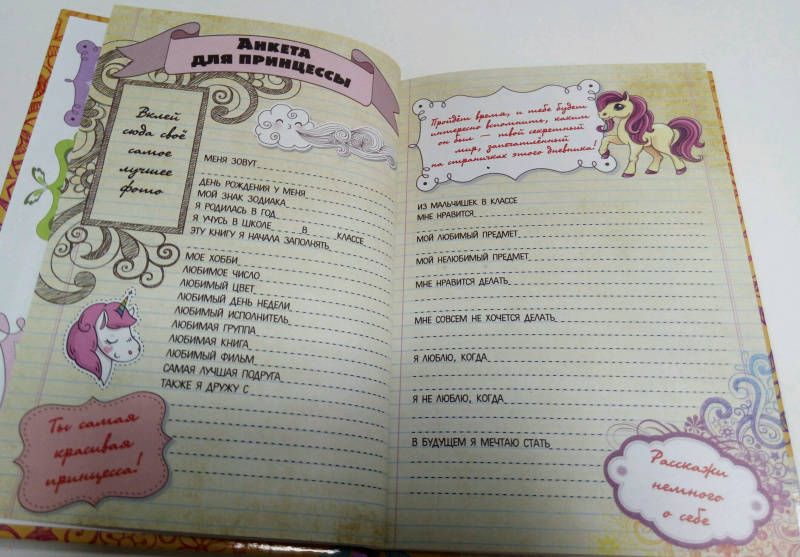 АНКЕТА
ДЛЯ ПРИНЦЕССЫ
Вклей
сюда своё
самое
лучшее
фото
МЕНЯ ЗОВУТ
ДЕНЬ РОЖДЕНИЯ У МЕНЯ
МОЙ ЗНАК ЗОДИАКА
Я РОДИЛАСЬ В ГОД
Я УЧУСЬ В ШКОЛЕ В КЛАССЕ
ЭТУ КНИГУ Я НАЧАЛА ЗАПОЛНЯТЬ
МОЕ ХОББИ
ЛЮБИМОЕ ЧИСЛО
ЛЮБИМЫЙ ЦВЕТ
ЛЮБИМЫЙ ДЕНЬ НЕДЕЛИ
ЛЮБИМЫЙ ИСПОЛНИТЕЛЬ
ЛЮБИМАЯ ГРУППА
ЛЮБИМАЯ КНИГА
ЛЮБИМЫЙ ФИЛЬМ
САМАЯ ЛУЧШАЯ ПОДРУГА
ТАКЖЕ Я ДРУЖУ С
Ты самая
красивая
принцесса!
Пройдёт время, и тебе будет
интересно вспомнить, каким
он был — твой секретный
мир, запечатлённый
на страничках этого дневника!
ИЗ МАЛЬЧИШЕК В КЛАССЕ
МНЕ НРАВИТСЯ
МОЙ ЛЮБИМЫЙ ПРЕДМЕТ
МОЙ НЕЛЮБИМЫЙ ПРЕДМЕТ
МНЕ НРАВИТСЯ ДЕЛАТЬ
МНЕ СОВСЕМ НЕ ХОЧЕТСЯ ДЕЛАТЬ
Я ЛЮБЛЮ, КОГДА
Я НЕ ЛЮБЛЮ, КОГДА
В БУДУЩЕМ Я МЕЧТАЮ СТАТЬ
Расскажи
немного
о себе